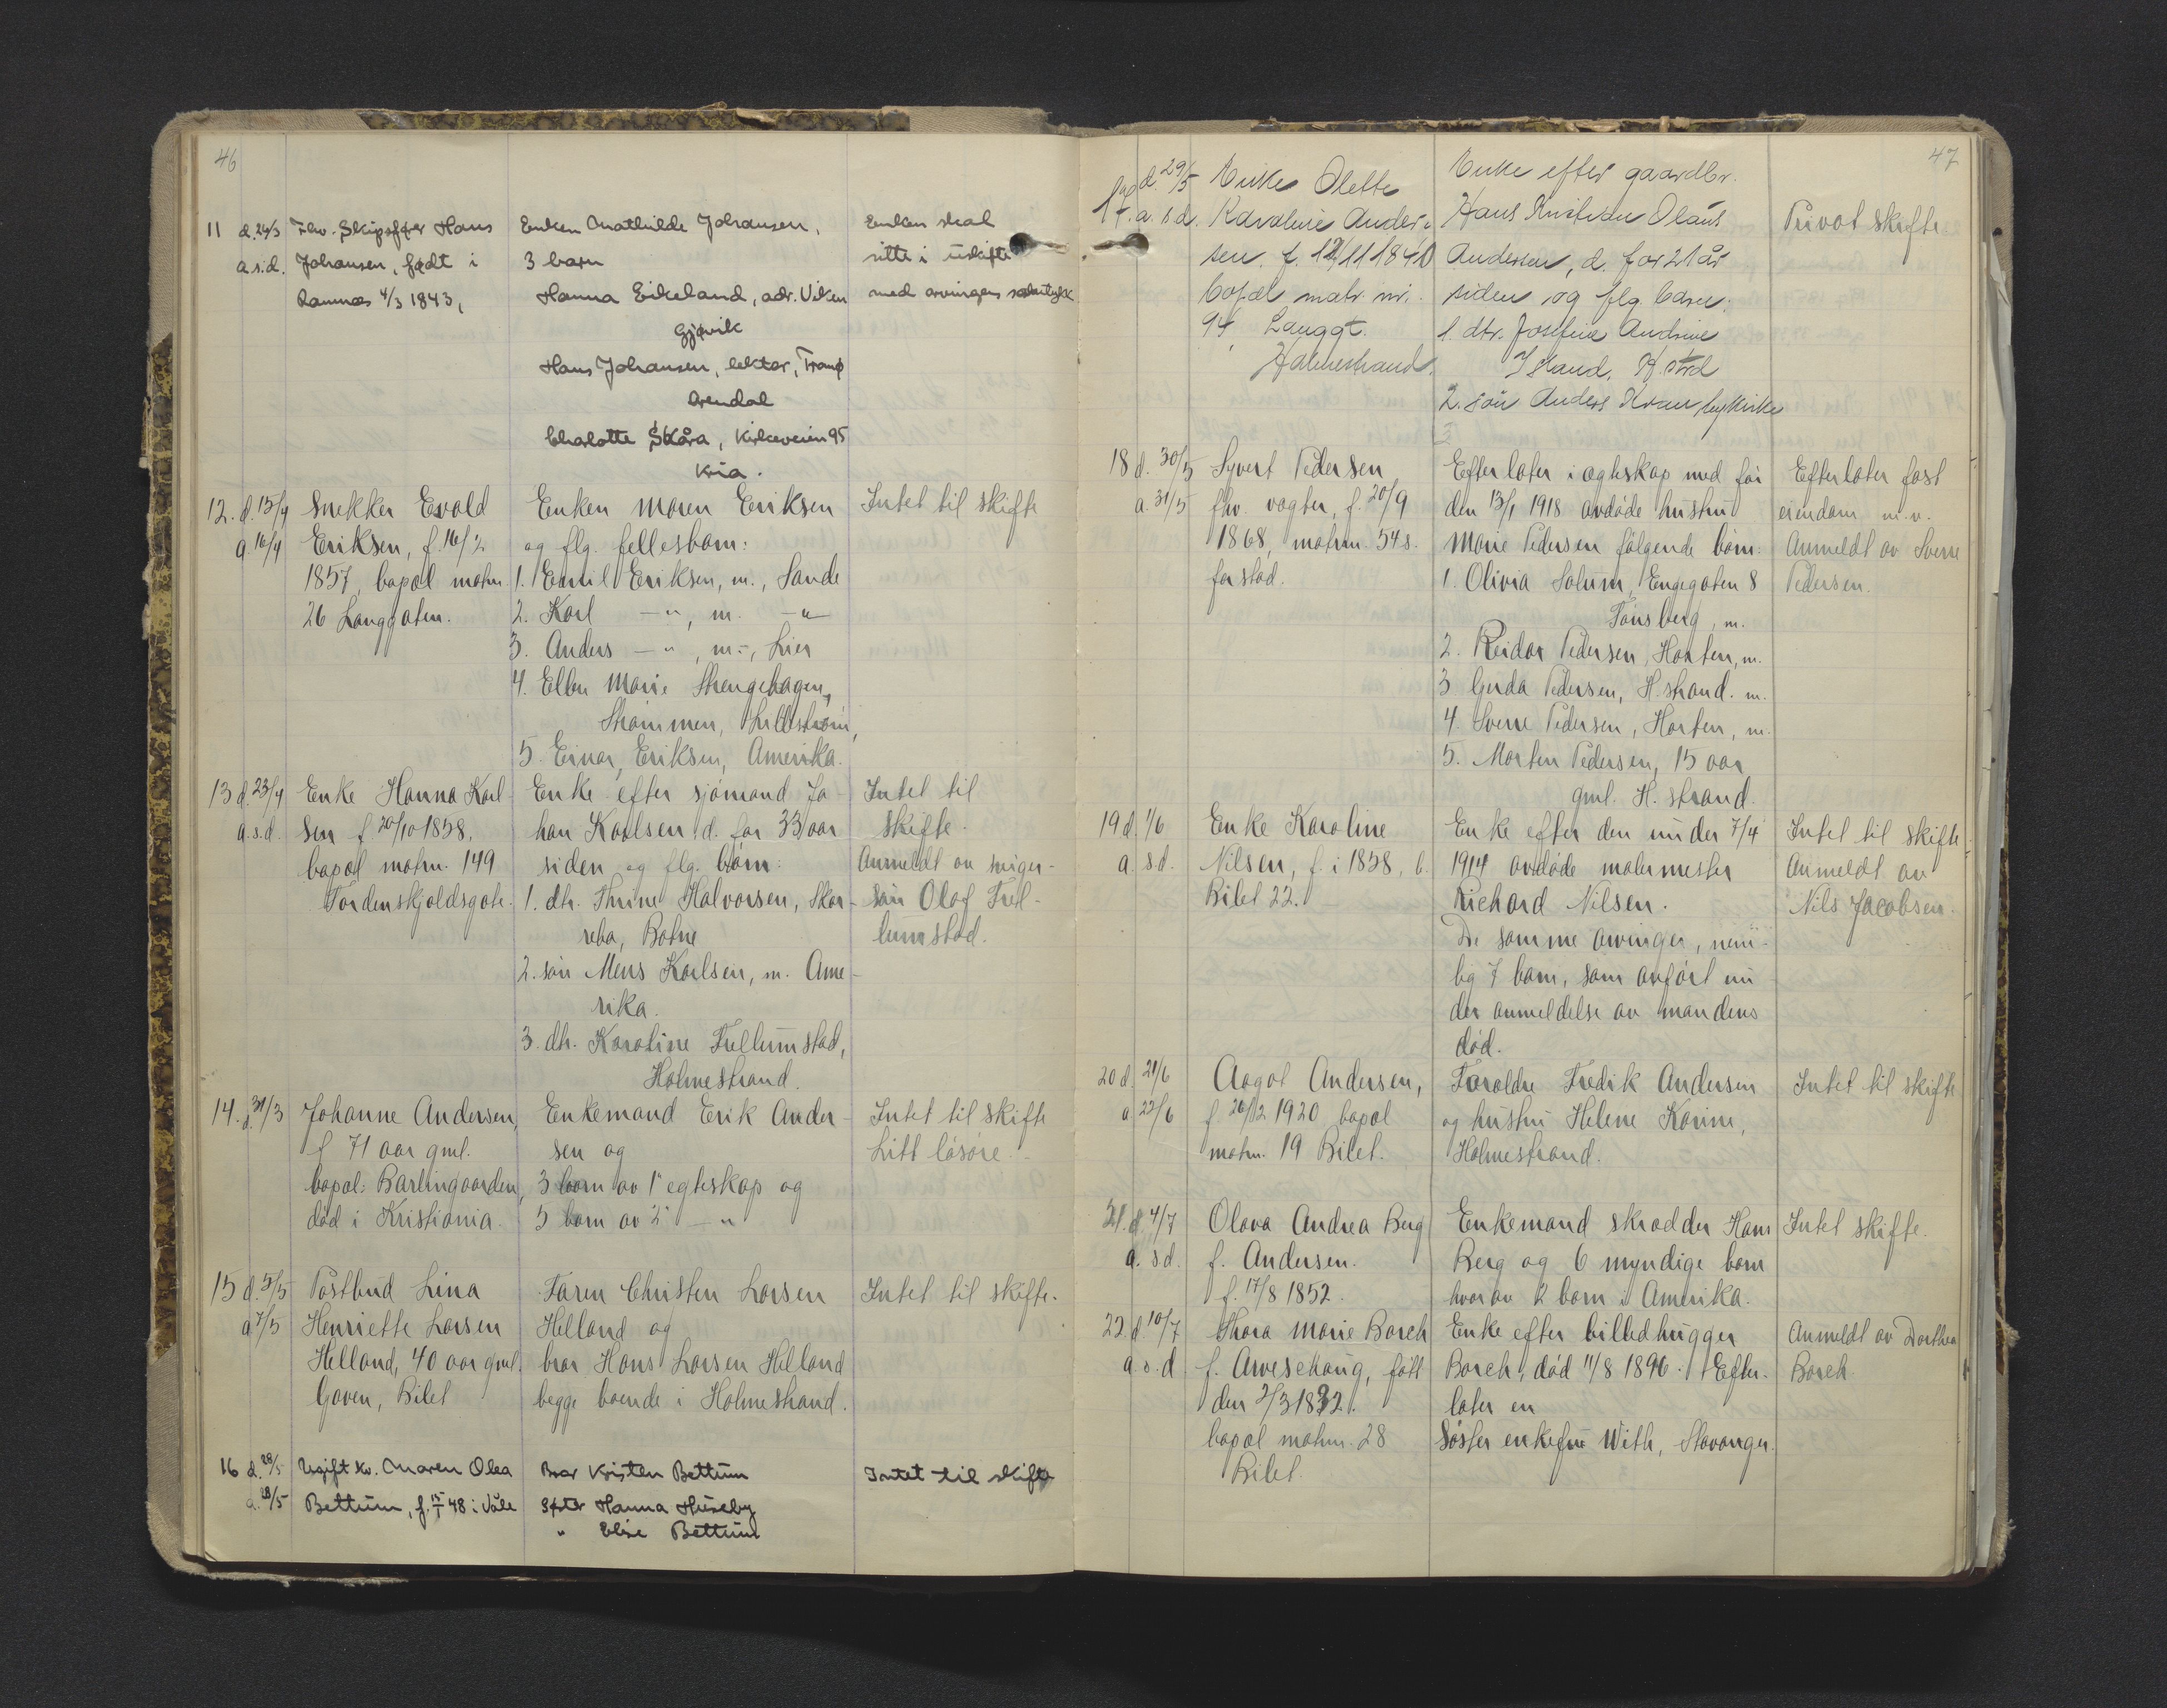 46
11 d. 24/3 Fhv. Skipsfører Hans Enken Mathilde Johansen, Enken skal
a.s.d. Johansen, født i 3 barn sitte i uskifte
Ramnes 4/3 1843, Hanna Eikeland, adr. Viken med arvingers samtykk
Gjøvik
Hans Johansen, lektor, Tromø
Arendal
Charlotte Skåra, Kirkeveien 95
Kria.
12. d. 15/4 Snekker Evald Enken Maren Eriksen Intet til skifte
a 16/4 Eriksen, f. 16/2 og flg. fellesbarn:
1857, bopæl matrn. 1. Emil Eriksen, m., Sande
26 Langgaten. 2. Karl —"—, m. —"—
3. Anders —"—, m., Lier
4. Ellen Marie Strengehagen,
Strømmen, Lillestrøm,
5. Einar Eriksen, Amerika.
13 d. 23/4 Enke Hanna Karl- Enke efter sjømand Jo- Intet til
a.s.d. sen f 20/10 1858, han Karlsen d. for 33 aar skifte.
bopæl matrn. 149 siden og flg. børn: Anmeldt av sviger-
Tordenskjoldsgate. 1. dtr. Thrine Halvorsen, Skar- søn Olaf Trel-
reba, Botne lumstad.
2. søn Mens Karlsen, m. Ame-
rika.
3. dtr. Karoline Trellumstad,
Holmestrand.
14. d. 31/3 Johanne Andersen, Enkemand Erik Ander- Intet til skifte
f 71 aar gml. sen og Litt løsøre.
bopæl: Bærlingaarden, 3 barn av 1" egteskap og
død i Kristiania. 5 barn av 2" —"—
15 d. 5/5 Postbud Lina Faren Christen Larsen Intet til skifte.
a 7/5 Henriette Larsen Helland og
Helland, 40 aar gml. bror Hans Larsen Helland
Gaven, Bilet begge boende i Holmestrand.
16 d. 28/5 Ugift kv. Maren Olea Bror Kristen Bettum Intet til skifte
a. 28/5 Bettum, f. 15/1 48 i Våle Søster Hanna Huseby
" Elise Bettum
47
17. d. 29/5 Enke Olette Enke efter gaardbr.
a.s.d. Karoline Ander- Hans Kristian Olaus Privat skifte
sen. f. 12/11 1840 Andersen, d. for 21 år
bopæl matr. nr. siden og flg. børn:
94, Langgt. 1. dtr. Josefine Andrine
Holmestrand. Island, H.strd
2. søn Anders
18 d. 30/5 Syvert Pedersen Efterlater i egteskap med før Efterlater fast
a. 31/5 fhv. vogter, f. 20/9 den 13/1 1918 avdøde hustru eiendom m.v.
1868, matrn. 54 s. Marie Pedersen følgende børn: Anmeldt av Sverre
forstad. 1. Olivia Solum, Engegaten 8 Pedersen.
Tønsberg, m.
2. Reidar Pedersen, Horten, m.
3 Gerda Pedersen, H.strand. m.
4. Sverre Pedersen, Horten, m.
5. Morten Pedersen, 15 aar
gml. H.strand.
19 d. 1/6 Enke Karoline Enke efter den under 7/4 Intet til skifte
a s.d. Nilsen, f. i 1858, b. 1914 avdøde malermester Anmeldt av
Bilet 22. Richard Nilsen. Nils Jacobsen.
De samme arvinger, nem-
lig 7 barn, som anført un
der anmeldelse av mandens
død.
20 d. 21/6 Aagot Andersen, Foreldre Fredik Andersen Intet til skifte
a 22/6 f. 26/12 1920 bopæl og hustru Helene Karine,
matrn. 19 Bilet. Holmestrand.
21. d. 4/7 Olava Andrea Berg Enkemand skrædder Hans Intet skifte.
a. s.d. f. Andersen. Berg og 6 myndige barn
f. 17/8 1852. hvorav 2 barn i Amerika.
22. d 10/7 Thora Marie Borch Enke efter billedhugger Anmeldt av Dorthea
a.s.d. f. Arveschoug, født Borch, død 11/8 1896. Efter- Borch
den 2/3 1832. later en
bopæl matrn. 28 Søster enkefru With, Stavanger.
Bilet.